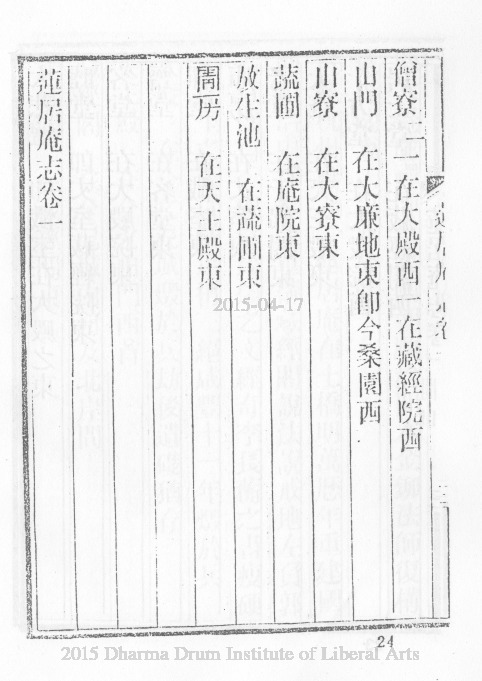 僧寮二 一在大殿西一在藏經院西
山門 在大廉地東卽今桑園西
山寮 在大寮東
蔬圃 在庵院東
放生池 在蔬圃東
圊房 在天王殿東
蓮居庵志卷一
2015-04-17
24
2015 Dharma Drum Institute of Liberal Arts